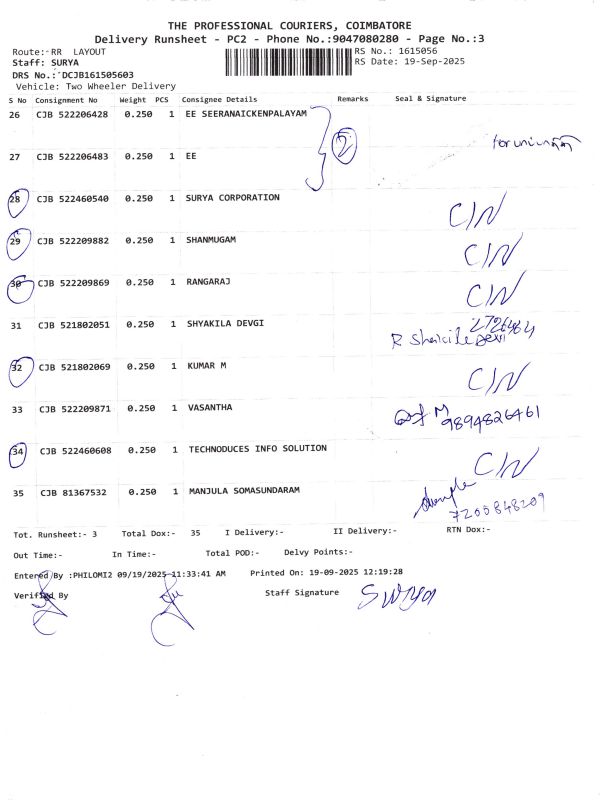 THE PROFESSIONAL COURIERS, COIMBATORE
Delivery Runsheet - PC2 - Phone No.:9047080280 - Page No.:3
Route:-RR LAYOUT
RS No.: 1615056
Staff: SURYA
RS Date: 19-Sep-2025
DRS No.:DCJB161505603
Vehicle: Two Wheeler Delivery
S No Consignment No Weight PCS Consignee Details Remarks Seal & Signature
26 CJB 522206428 0.250 1 EE SEERANAICKENPALAYAM
2
27 CJB 522206483 0.250 1 EE
28 CJB 522460540 0.250 1 SURYA CORPORATION C/N
29 CJB 522209882 0.250 1 SHANMUGAM C/N
30 CJB 522209869 0.250 1 RANGARAJ C/N
31 CJB 521802051 0.250 1 SHYAKILA DEVGI
32 CJB 521802069 0.250 1 KUMAR M C/N
33 CJB 522209871 0.250 1 VASANTHA
9894826461
34 CJB 522460608 0.250 1 TECHNODUCES INFO SOLUTION C/N
35 CJB 81367532 0.250 1 MANJULA SOMASUNDARAM
7200848209
Tot. Runsheet:- 3 Total Dox:- 35 I Delivery:- II Delivery:- RTN Dox:-
Out Time:- In Time:- Total POD:- Delvy Points:-
Entered By :PHILOMI2 09/19/2025 11:33:41 AM Printed On: 19-09-2025 12:19:28
Verified By Staff Signature Surya